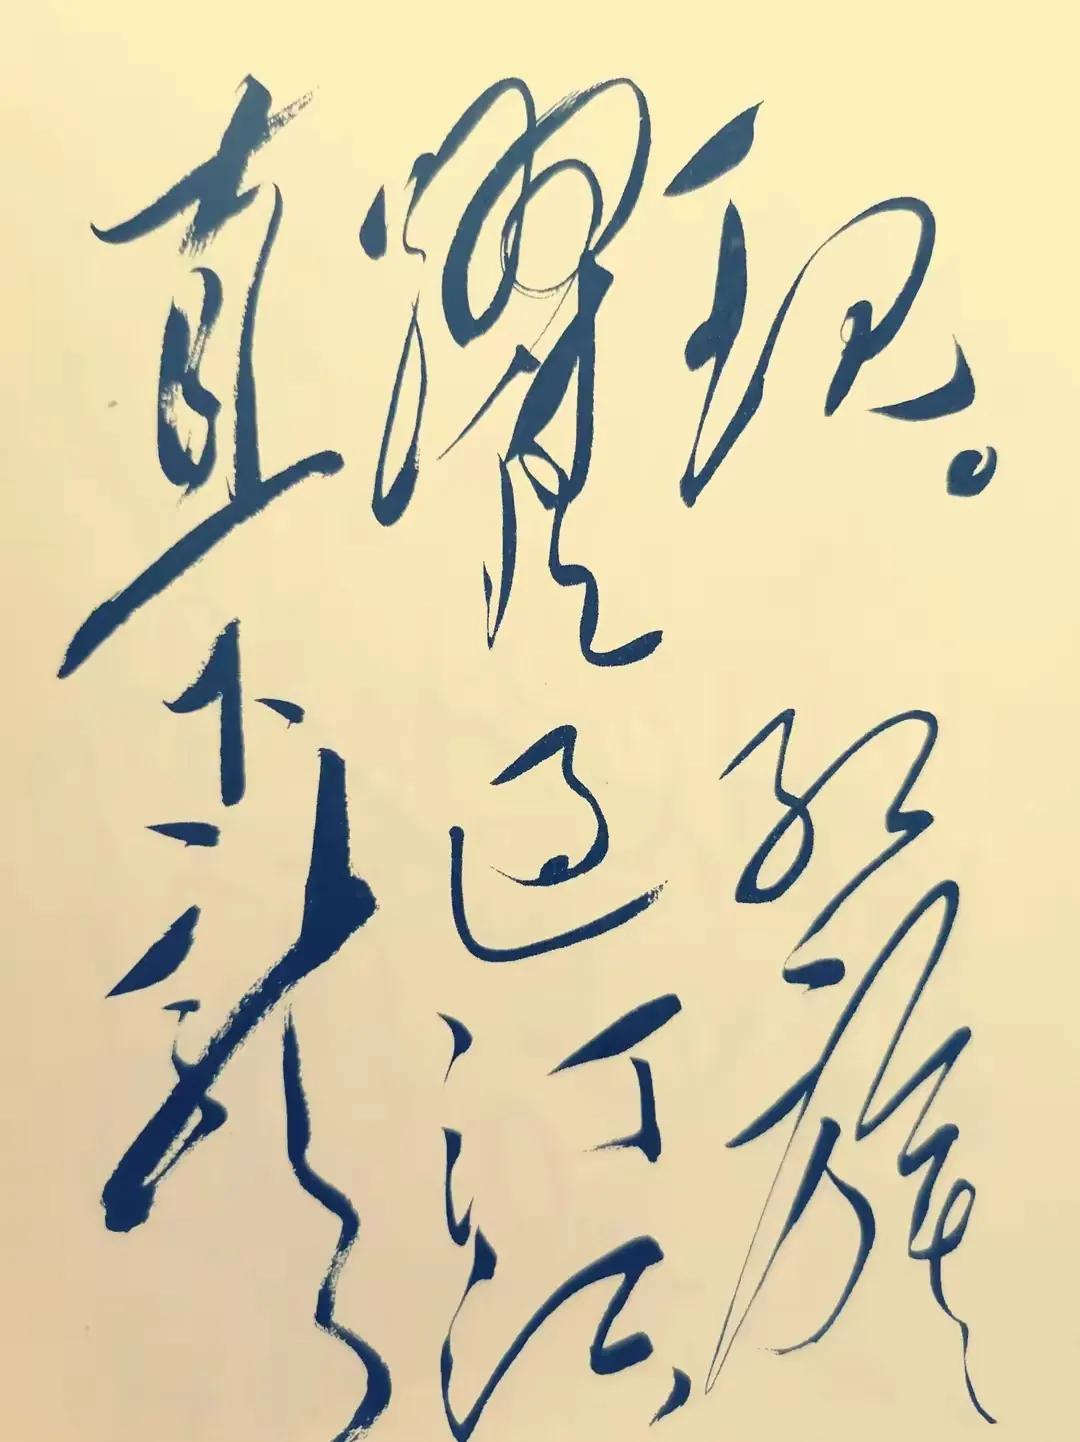 现。红旗
躍过汀江，
直下龙